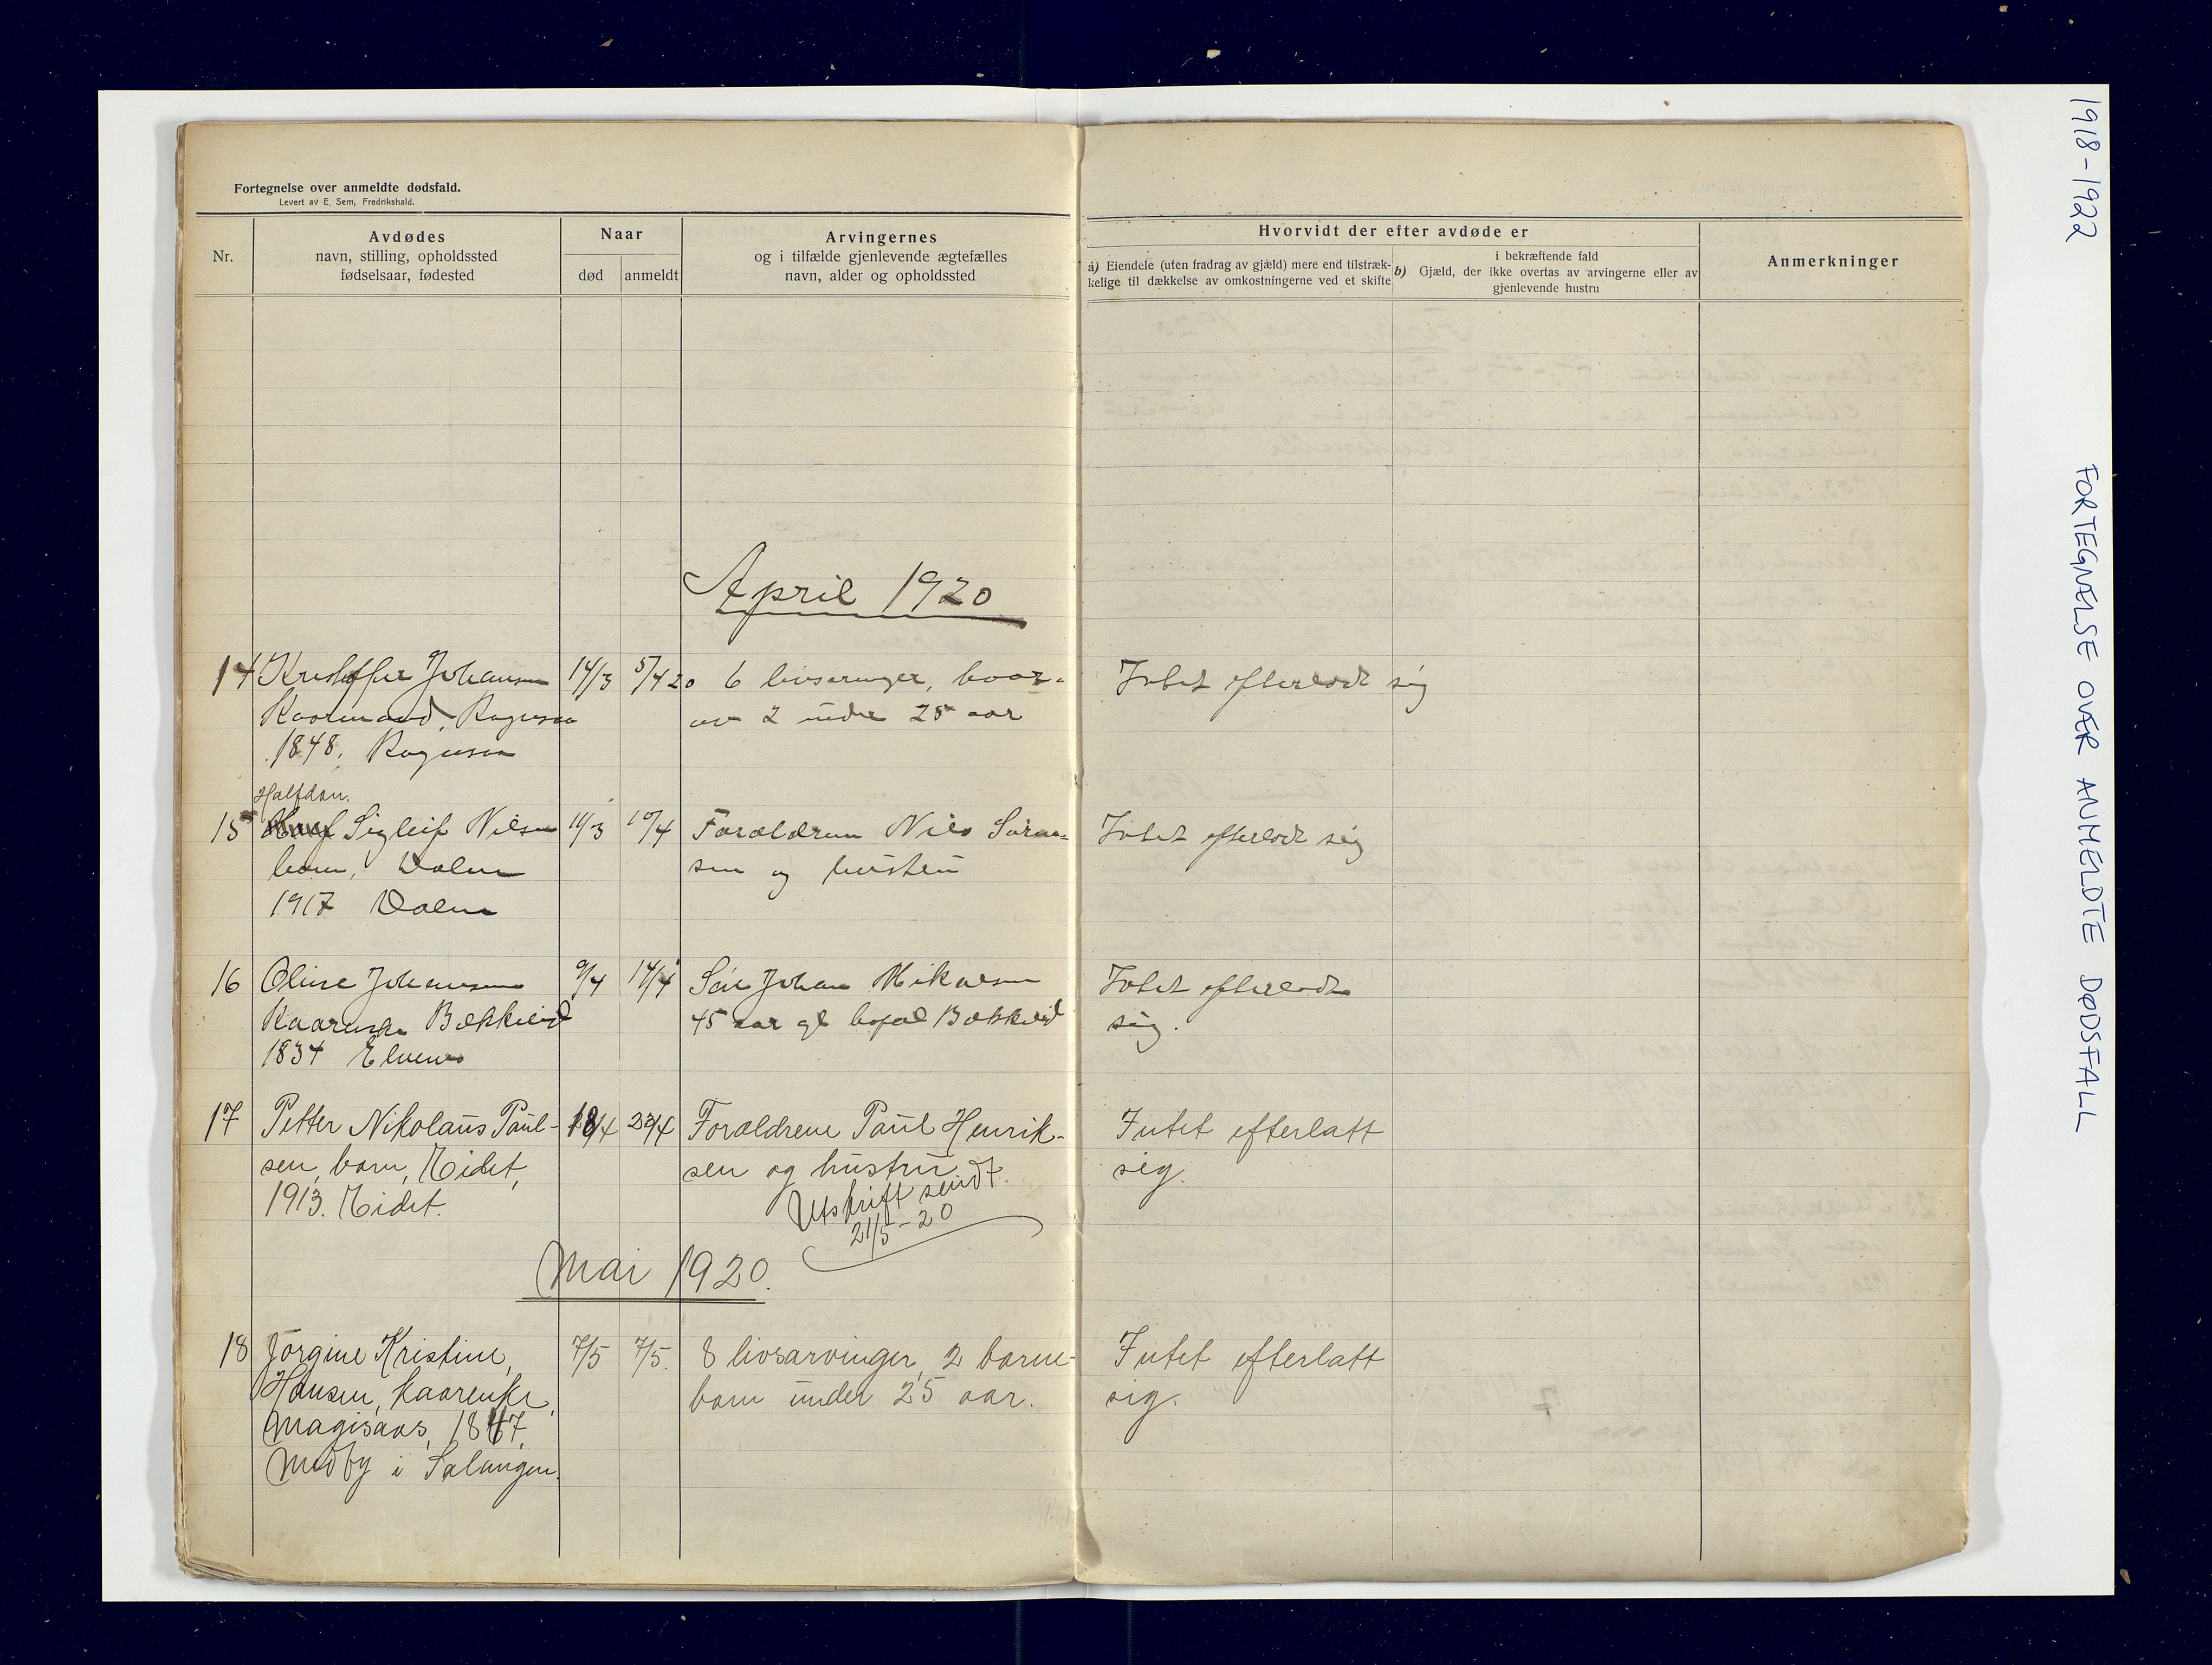 Fortegnelse over anmeldte dødsfald.
Levert av E. Sem, Fredrikshald.
Nr.
Avdødes
navn, stilling, opholdssted
fødselsaar, fødested
Naar
død
anmeldt
Arvingernes
og i tilfælde gjenlevende ægtefælles
navn, alder og opholdssted
Hvorvidt der efter avdøde er
a) Eiendele (uten fradrag av gjæld) mere end tilstræk-
kelige til dækkelse av omkostningerne ved et skifte
i bekræftende fald
b) Gjæld, der ikke overtas av arvingerne eller av
gjenlevende hustru
Anmerkninger
April 1920
14 Kristoffer Johansen 14/3 5/4 20 6 livsarvinger, hvor- Intet efterladt sig
Kaarmand, av 2 under 25 aar
1848,
Halfdan.
15 Sigleif Nilsen 11/3 10/4 Forældrene Nils Søren- Intet efterladt sig
barn, Dalen sen og hustru
1917 Dalen
16 Oline Johansen 9/4 14/4 Søn Johan Mikalsen Intet efterladt
Kaarenke Bækkeid 45 aar gl bopæl Bækkeid sig.
1834
17 Petter Nikolaus Paul- 18/4 23/4 Forældrene Paul Henrik- Intet efterlatt
sen, barn, sen og hustru sig.
1913.
Utskrift sendt
21/5-20
Mai 1920.
18 Jørgine Kristine 7/5 7/5. 8 livsarvinger, 2 barne- Intet efterlatt
Hansen, kaarenke, barn under 25 aar. sig.
Magisaas, 1847,
Medby i Salangen.
1918-1922 FORTEGNELSE OVER ANMELDTE DØDSFALL